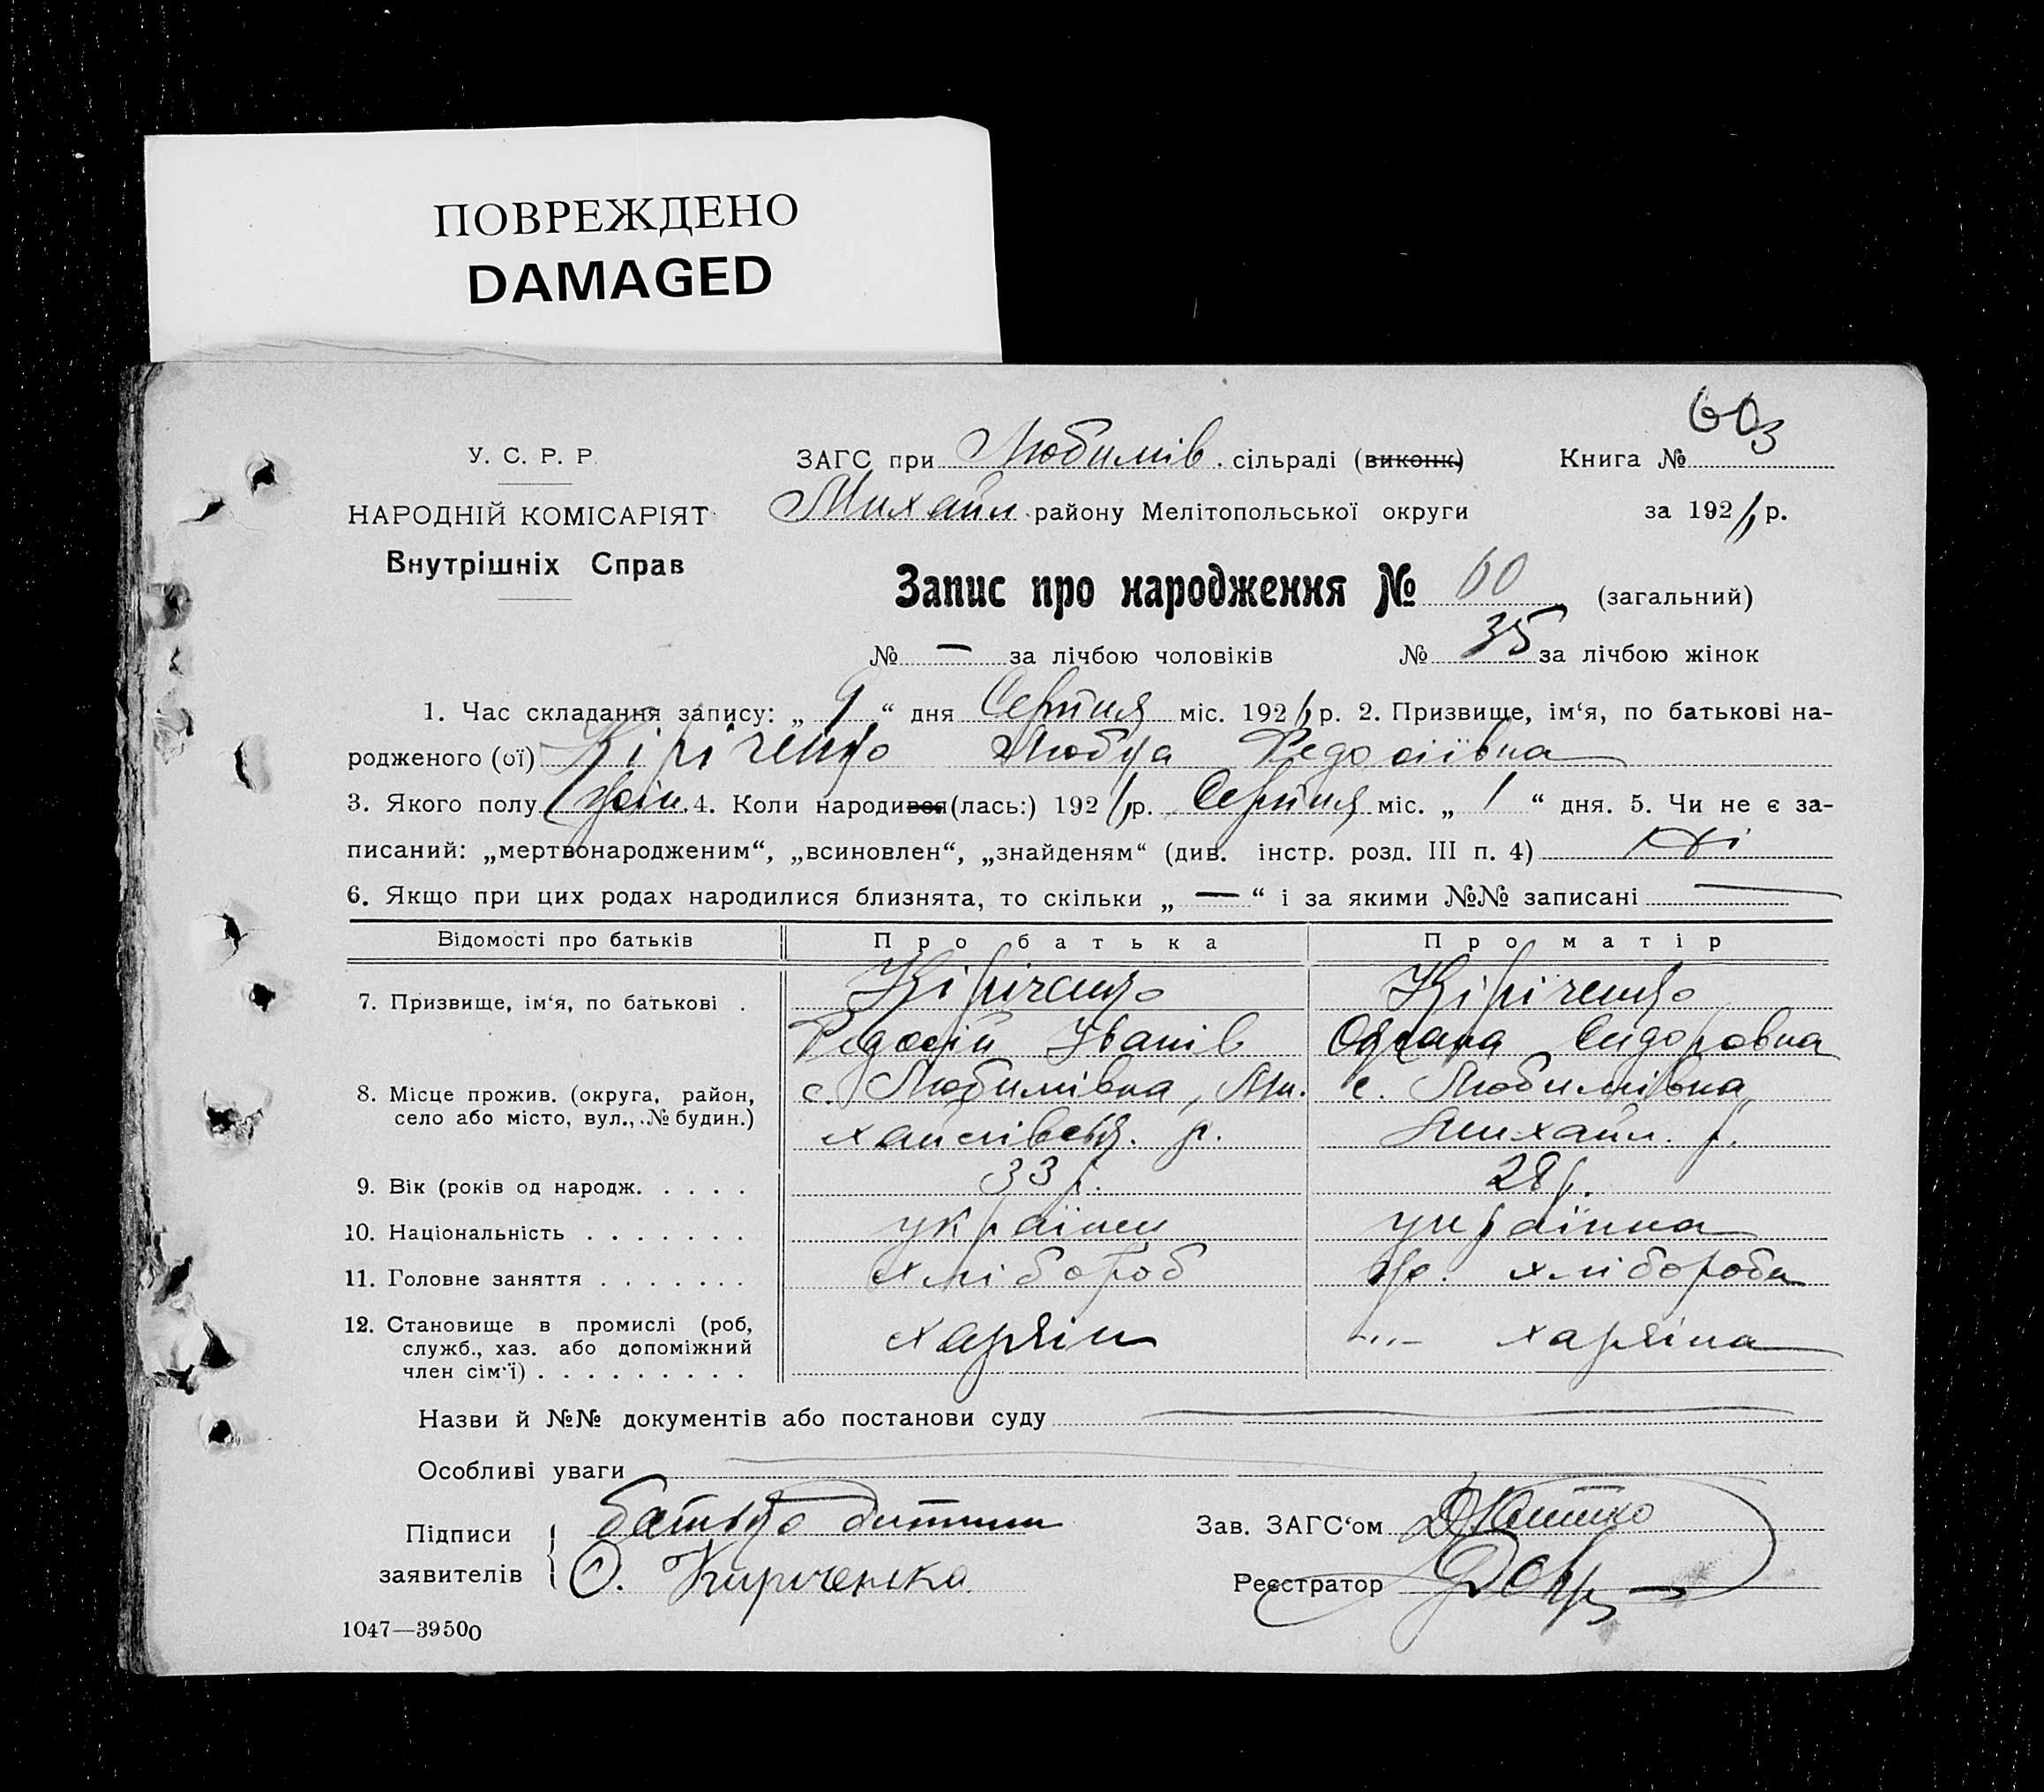 ПОВРЕЖДЕНО
DAMAGED
603
У. С. Р. Р.
ЗАГС при Любимів. сільраді (виконк) Книга №
НАРОДНІЙ КОМІСАРІЯТ
Михайл. району Мелітопольської округи за 192 р.
Внутрішніх Справ
Запис про народження № 60 (загальний)
№ — за лічбою чоловіків № 35 за лічбою жінок
1. Час складання запису: „ 9 “ дня Серпня міс. 192 р. 2. Призвище, ім‘я, по батькові на-
родженого (ої) Кіріченко Любка Федосіївна
3. Якого полу жін. 4. Коли народився (лась:) 192 р. Серпня міс. „ 1 “ дня. 5. Чи не є за-
писаний: „мертвонародженим“, „всиновлен“, „знайденям“ (див. інстр. розд. III п. 4) ні
6. Якщо при цих родах народилися близнята, то скільки „ — “ і за якими №№ записані —
Відомості про батьків Про батька Про матір
7. Призвище, ім‘я, по батькові . Кіріченко Кіріченко
Федосій Іванів Сидоровна
8. Місце прожив. (округа, район, с. Любимівка, Ми- с. Любимівка
село або місто, вул., № будин.) хайлівськ. р. Михайл. р.
9. Вік (років од народж. . . . . 33 р. 28 р.
10. Національність . . . . . . . українец українка
11. Головне заняття . . . . . . . хлібороб хлібороба
12. Становище в промислі (роб, хазяїн —„— хазяїна
служб., хаз. або допоміжний
член сім‘ї) . . . . . . . . .
Назви й №№ документів або постанови суду —
Особливі уваги —
Підписи батько дитини Зав. ЗАГС‘ом
заявителів Ф. Кириченко Реєстратор
1047—39500